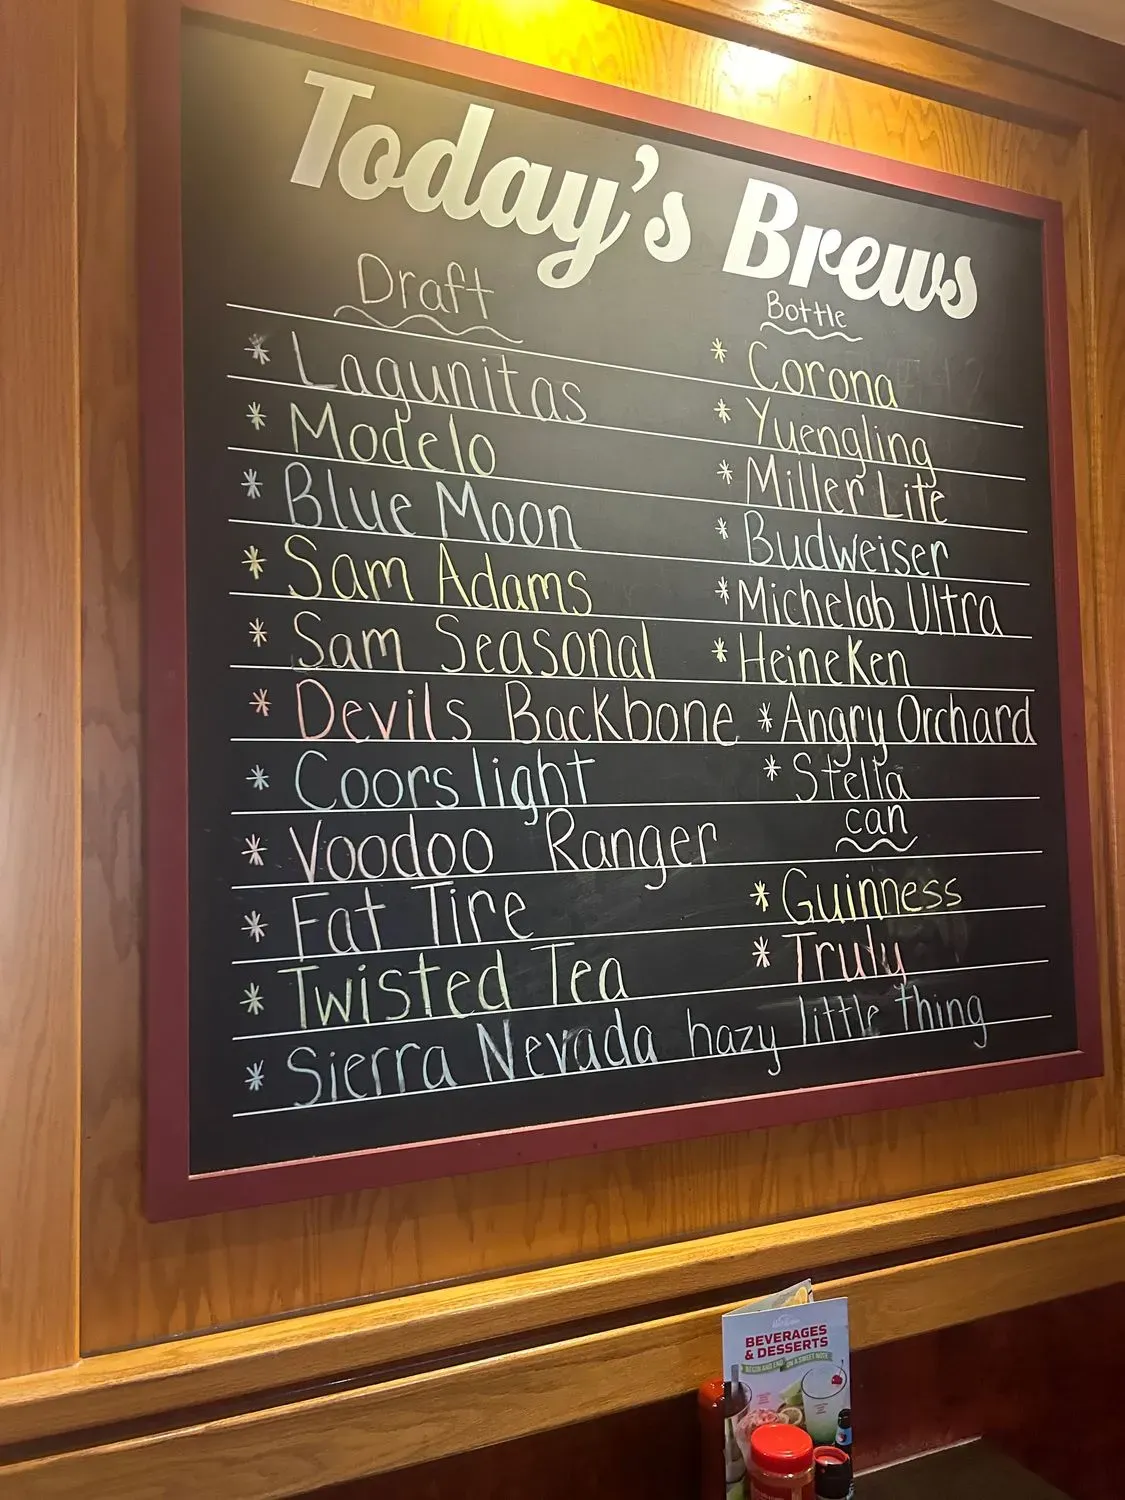 Today's Brews
Draft
* Lagunitas
* Modelo
* Blue Moon
* Sam Adams
* Sam Seasonal
* Devils Backbone
* Coors light
* Voodoo Ranger
* Fat Tire
* Twisted Tea
* Sierra Nevada hazy little thing
Bottle
* Corona
* Yuengling
* Miller Lite
* Budweiser
* Michelob Ultra
* HeineKen
* Angry Orchard
* Stella
can
* Guinness
* Truly
BEVERAGES
& DESSERTS
BEGIN AND END ON A SWEET NOTE